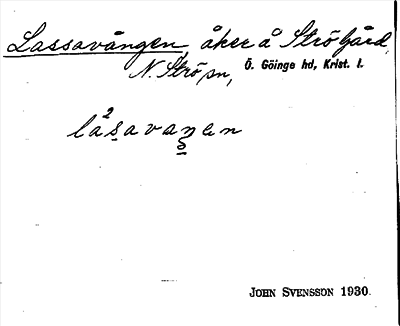 Lassavången, åker å Strö gård,
N. Strö sn, Ö. Göinge hd, Krist. l.
JOHN SVENSSON 1930.